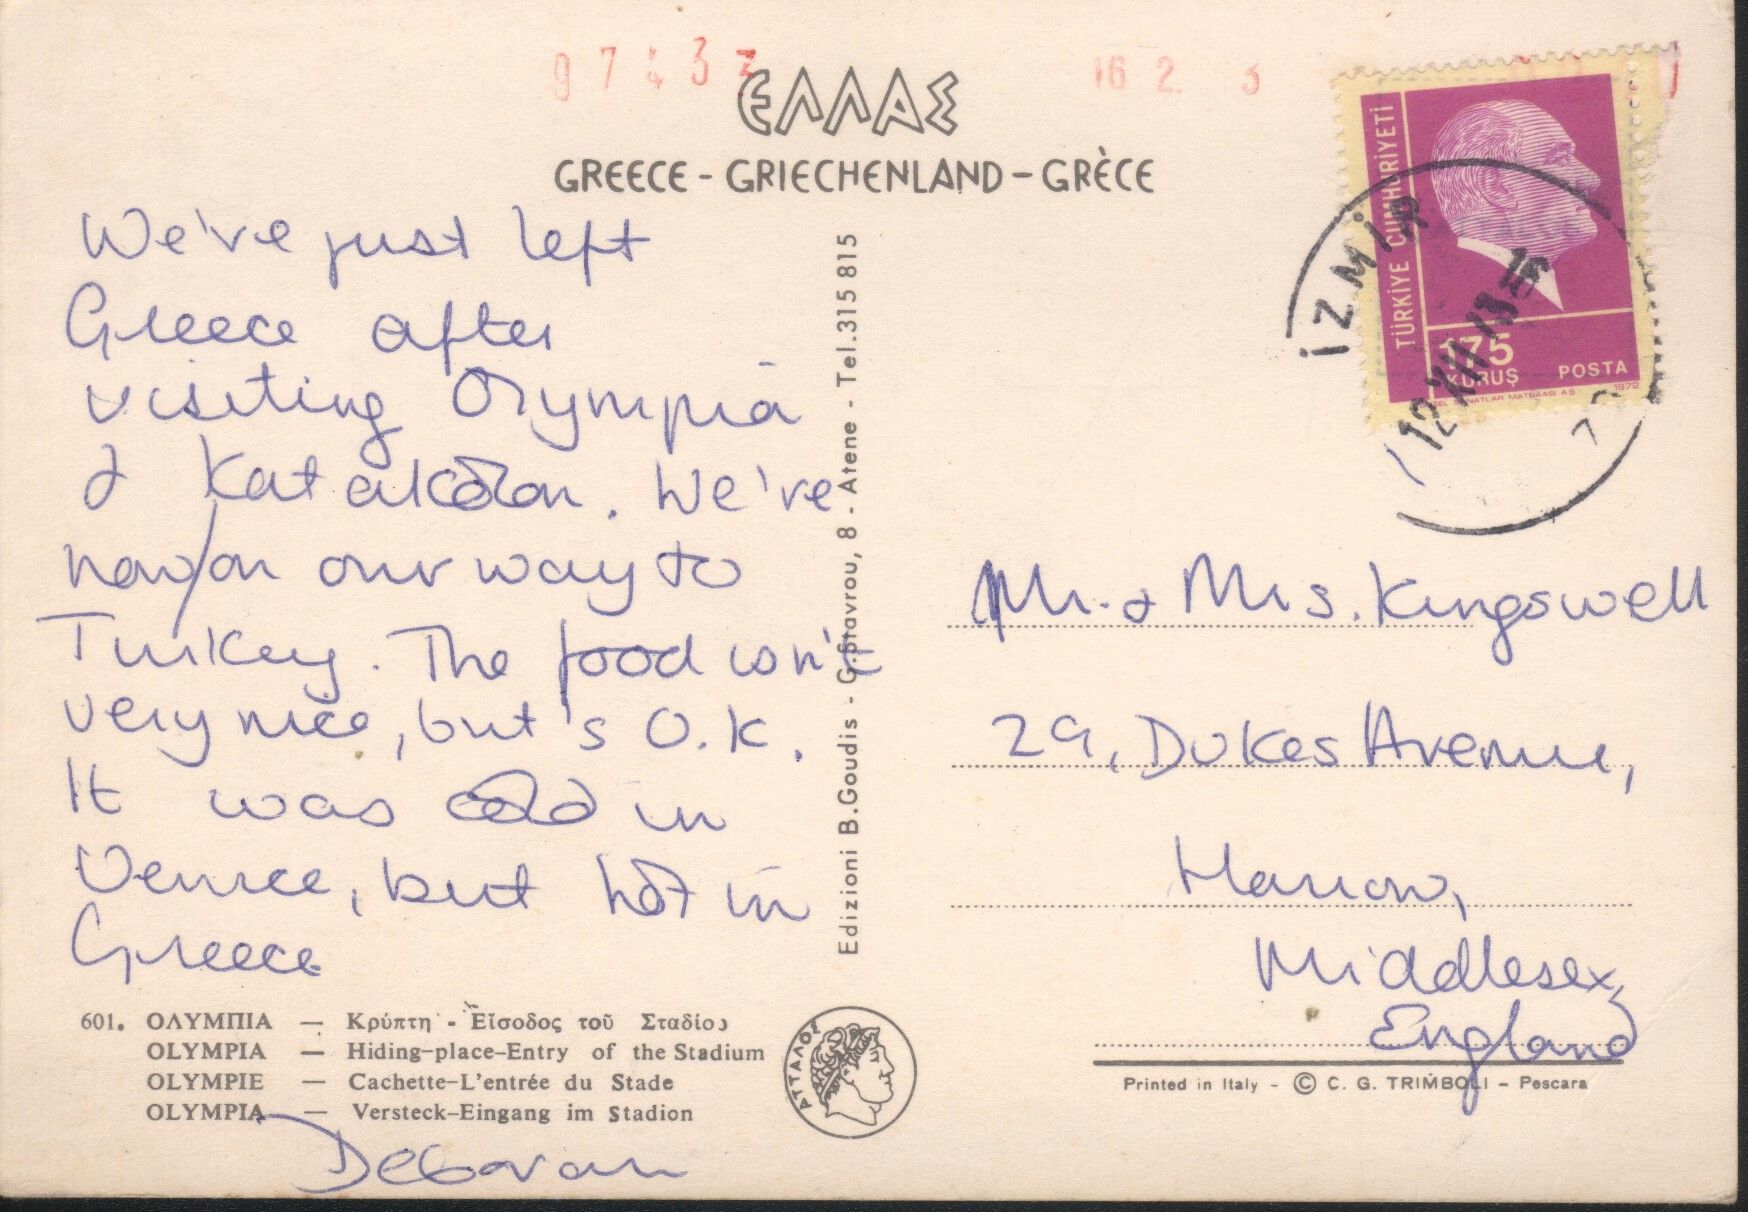 97433
16 2 3
ΕΛΛΑΣ
GREECE - GRIECHENLAND - GRÈCE
We've just left
Greece after
visiting Olympia
& Katakolon. We've
now/on our way to
Turkey. The food isn't
very nice, but 's O.K.
It was cold in
Venice, but hot in
Greece
601. ΟΛΥΜΠΙΑ — Κρύπτη - Εἴσοδος τοῦ Σταδίου
OLYMPIA — Hiding-place-Entry of the Stadium
OLYMPIE — Cachette-L'entrée du Stade
OLYMPIA — Versteck-Eingang im Stadion
ΑΤΤΑΛΟΣ
Edizioni B.Goudis - G.Stavrou, 8 - Atene - Tel.315 815
TÜRKİYE CUMHURİYETİ
175
KURUŞ POSTA
1972
İZMİR
Mr. & Mrs. Kingswell
29, Dukes Avenue,
Harrow,
Middlesex,
England
Printed in Italy - © C. G. TRIMBOLI - Pescara